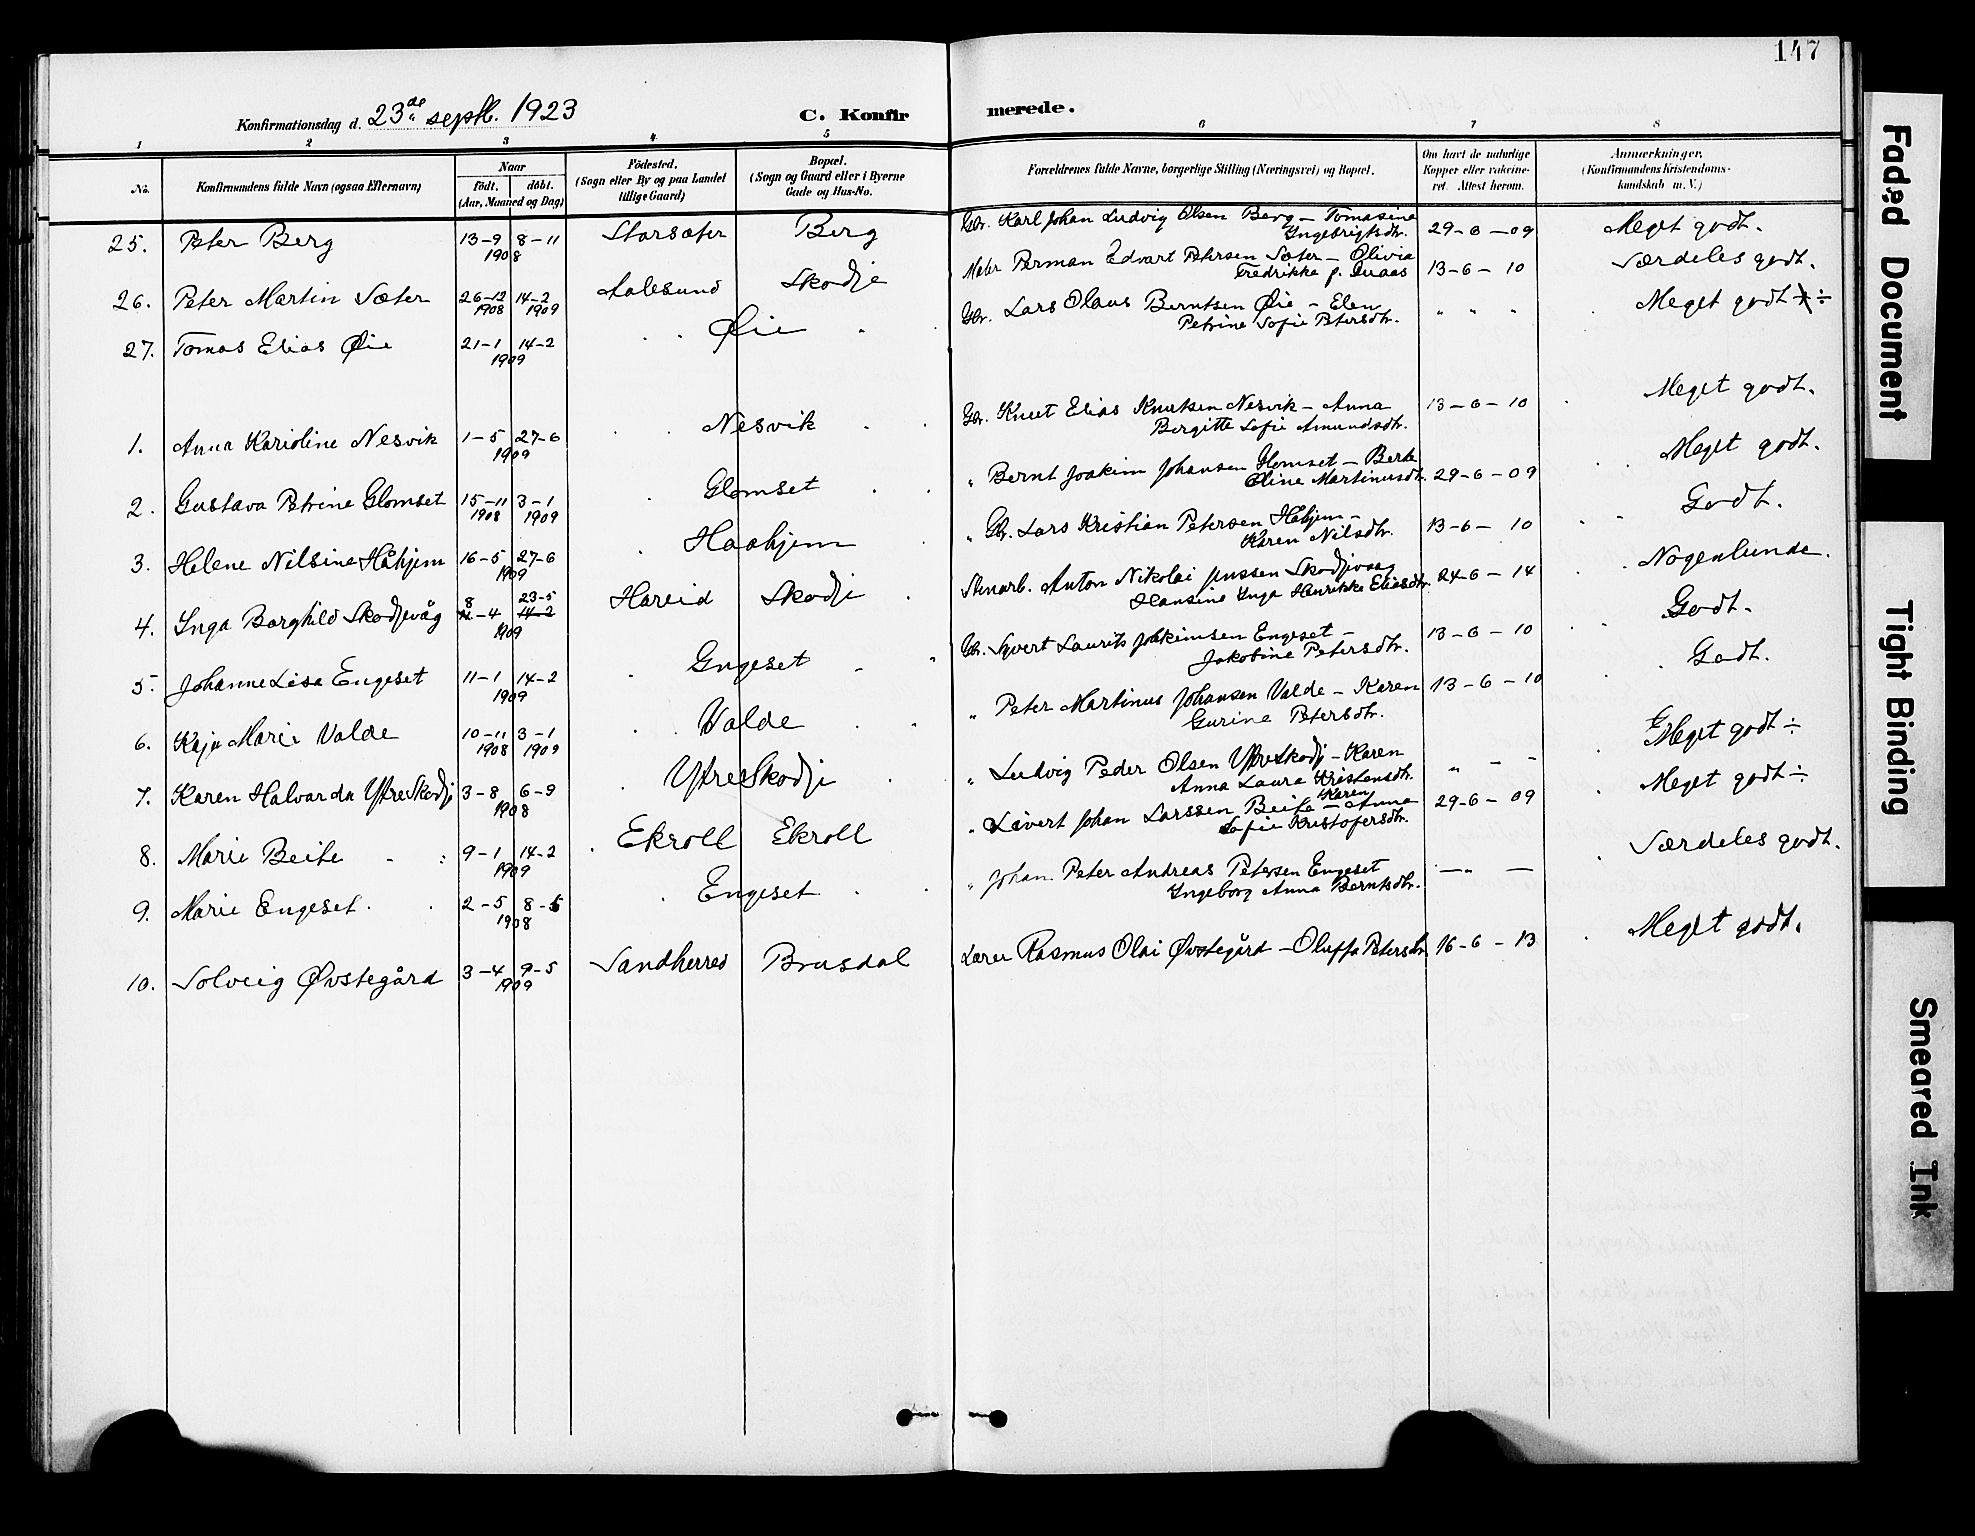 147
Konfirmationsdag d. 23de septb. 1923
C. Konfirmerede.
1 2 3 4 5 6 7 8
No.
Konfirmandens fulde Navn (ogsaa Efternavn)
Naar
født. døbt.
(Aar, Maaned og Dag)
Fødested.
(Sogn eller By og paa Landet
tillige Gaard)
Bopæl.
(Sogn og Gaard eller i Byerne
Gade og Hus-No.
Forældrenes fulde Navne, borgerlige Stilling (Næringsvei) og Bopæl.
Om havt de naturlige
Kopper eller vakcine-
ret. Attest herom.
Anmærkninger.
(Konfirmandens Kristendoms-
kundskab m. V.)
25. Peter Berg 13-9 8-11 1908 Storsæter Berg Gbr. Karl Johan Ludvig Olsen Berg - Tomasine
Ingebrigtsdtr. 29-6-09 Meget godt.
26. Peter Martin Sæter 26-12 1908 14-2 1909 Aalesund Skodje Maler Perman Edvart Petersen Sæter - Olivia
Fredrikke f. 13-6-10 Særdeles godt.
27. Tomas Elias Øie 21-1 14-2 1909 Øie Gbr. Lars Olaus Berntsen Øie - Elen
Petrine Sofie Petersdtr. " " " Meget godt ÷
1. Anna Karioline Nesvik 1-5 27-6 1909 Nesvik Gbr. Knut Elias Knutsen Nesvik - Anna
Bergitte Sofie Amundsdtr. 13-6-10 Meget godt.
2. Gustava Petrine Glomset 15-11 1908 3-1 1909 Glomset " Bernt Joakim Johansen Glomset - Berte
Eline Martinusdtr. 29-6-09 Meget godt.
3. Helene Nilsine Håhjem 16-5 27-6 1909 Haahjem " Gbr. Lars Kristian Petersen Håhjem -
Karen Nilsdtr. 13-6-10 Godt.
4. Inga Borghild Skodjevåg 8-4 23-5 14-2 1909 Hareid Skodje Stenarb. Anton Nikolai Jussen Skodjevaag
Hansine Inga Henrikke Eliasdtr. 24-6-14 Nogenlunde.
5. Johanne Lisa Engeset 11-1 14-2 1909 Engeset Gbr. Syvert Laurits Joakimsen Engeset -
Jakobine Petersdtr. 13-6-10 Godt.
6. Kaja Marie Valde 10-11 1908 3-1 1909 Valde " Peter Martinus Johansen Valde - Karen
Gurine Petersdtr. 13-6-10 Godt.
7. Karen Halvarda Ytreskodje 3-8 6-9 1908 Ytreskodje " Ludvig Peder Olsen Ytreskodj - Karen
Anna Laura Kristensdtr. " - - Meget godt ÷
8. Marie Beite 9-1 14-2 1909 Ekroll Ekroll " Sivert Johan Larssen Beite - Karen Anna
Sofie Kristofersdtr. 29-6-09 Meget godt ÷
9. Marie Engeset. 2-5 8-6 1908 Engeset " Johan Peter Andreas Petersen Engeset
Ingeborg Anna Berntsdtr. - " - Særdeles godt.
10. Solveig Øvstegård 3-4 9-5 1909 Sandherred Brusdal Lærer Rasmus Olai Øvstegård - Oluffa Petersdtr. 16-6-13 Meget godt.
Faded Document
Tight Binding
Smeared Ink